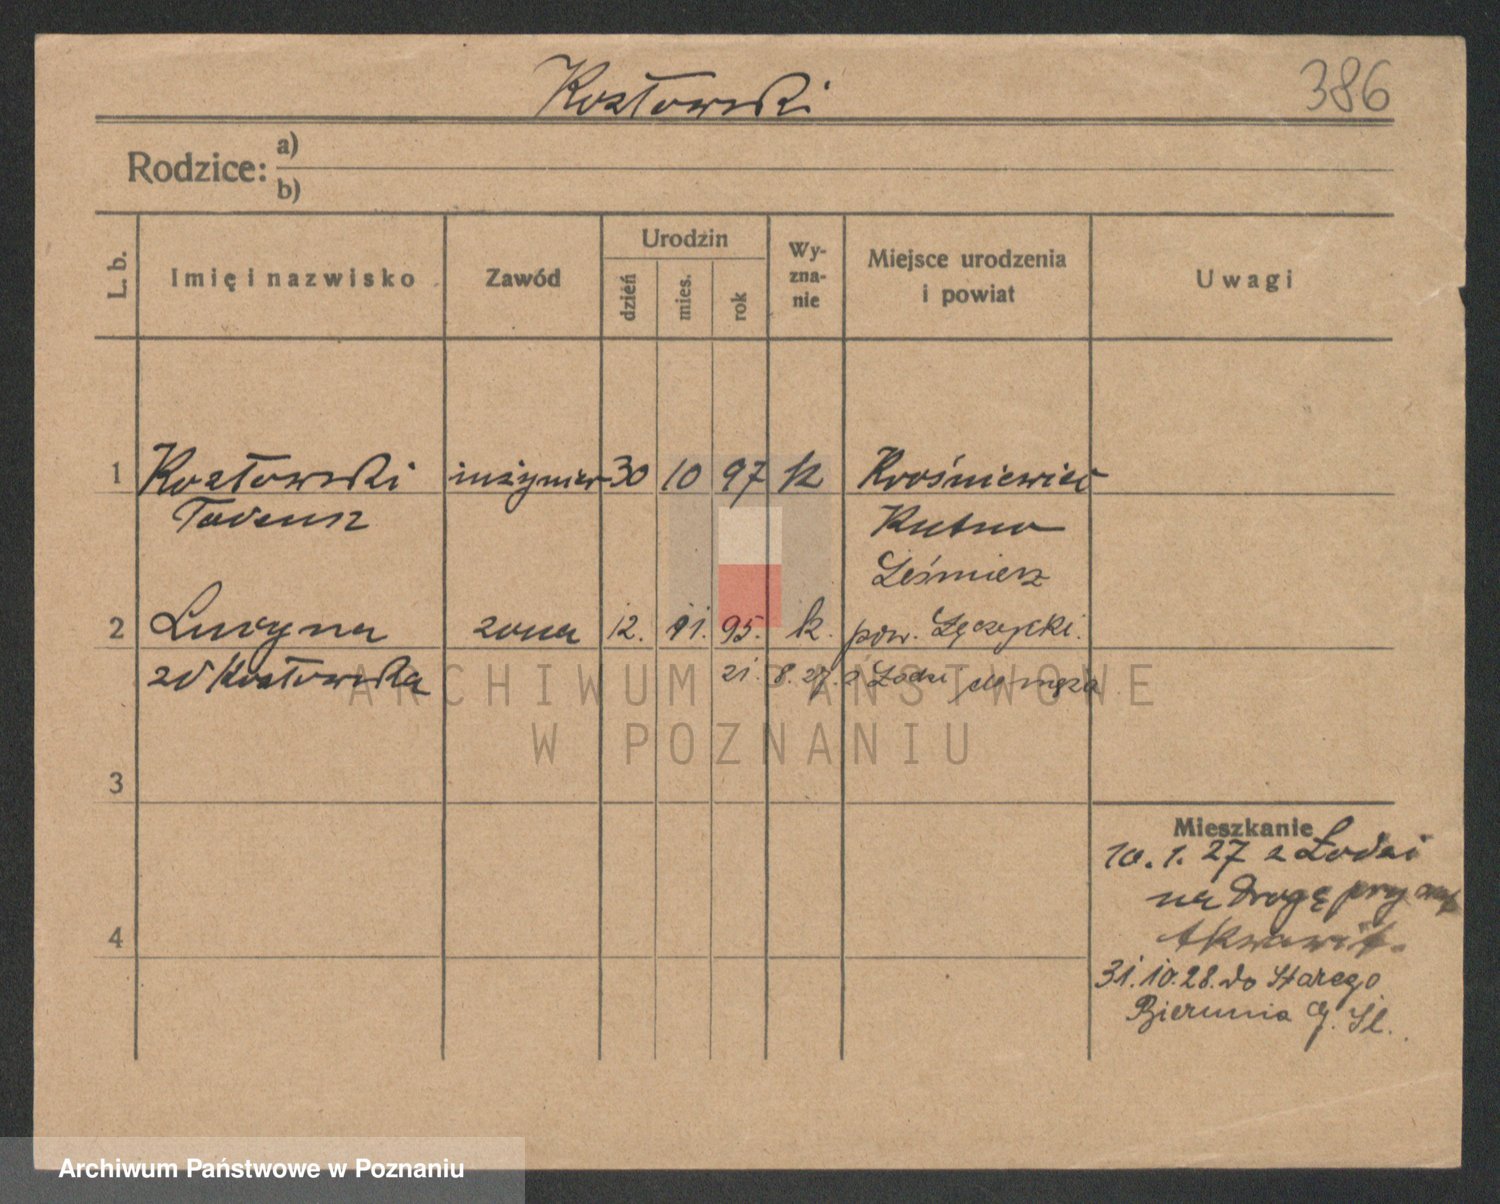 Kozłowski
386
Rodzice: a)
b)
L. b.
Imię i nazwisko
Zawód
Urodzin
dzień
mies.
rok
Wy-
zna-
nie
Miejsce urodzenia
i powiat
Uwagi
1 Kozłowski inżynier 30 10 97 k Krośniewice
Tadeusz Kutno
Leśmierz
2 żona 12. 11. 95. k. pow. Łęczycki.
zd Kozłowska 21. 8. 27. z Łodzi do męża
3
4
Mieszkanie
10. 1. 27 z Łodzi
na drogę przy
Akwawit.
31. 10. 28. do Starego
Bierunia G. Śl.
ARCHIWUM PAŃSTWOWE
W POZNANIU
Archiwum Państwowe w Poznaniu